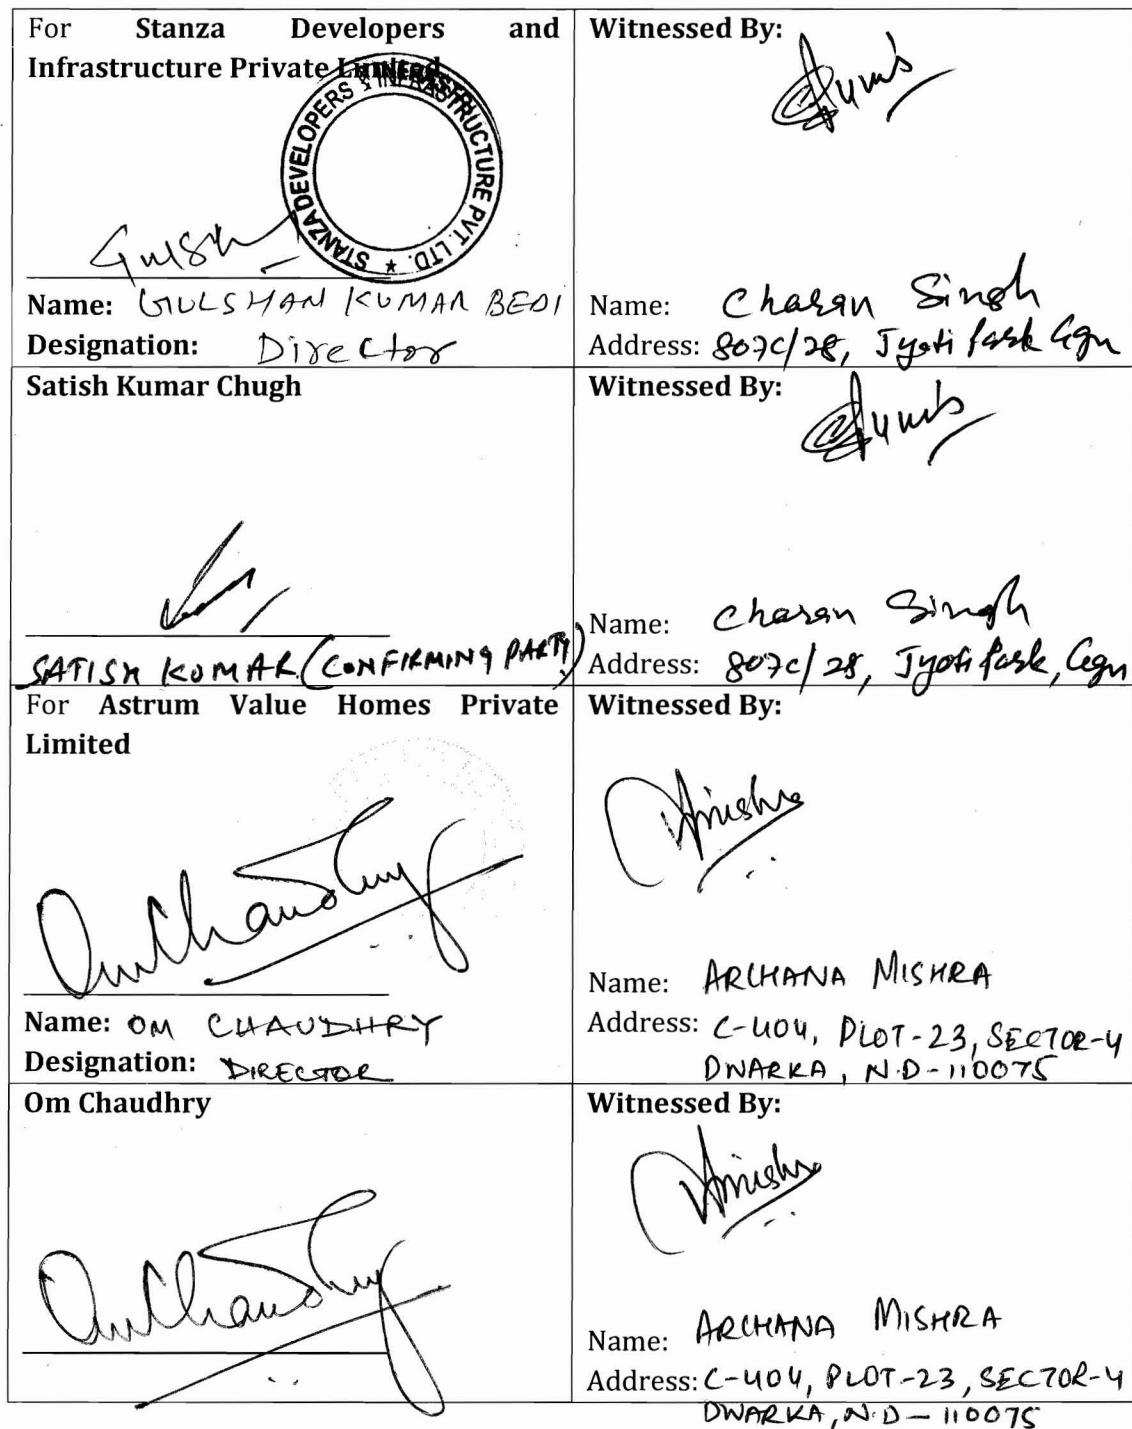 For Stanza Developers and
Infrastructure Private Limited
STANZA DEVELOPERS & INFRASTRUCTURE PVT. LTD. *
Name: GULSHAN KUMAR BEDI
Designation: Director
Witnessed By:
Name: Charan Singh
Address: 807C/28, Jyoti Park Ggn
Satish Kumar Chugh
SATISH KUMAR (CONFIRMING PARTY)
Witnessed By:
Name: Charan Singh
Address: 807C/28, Jyoti Park, Ggn
For Astrum Value Homes Private
Limited
Om Chaudhry
Name: OM CHAUDHRY
Designation: DIRECTOR
Witnessed By:
Name: ARCHANA MISHRA
Address: C-404, PLOT-23, SECTOR-4
DWARKA, N.D-110075
Om Chaudhry
Om Chaudhry
Witnessed By:
Name: ARCHANA MISHRA
Address: C-404, PLOT-23, SECTOR-4
DWARKA, N.D-110075